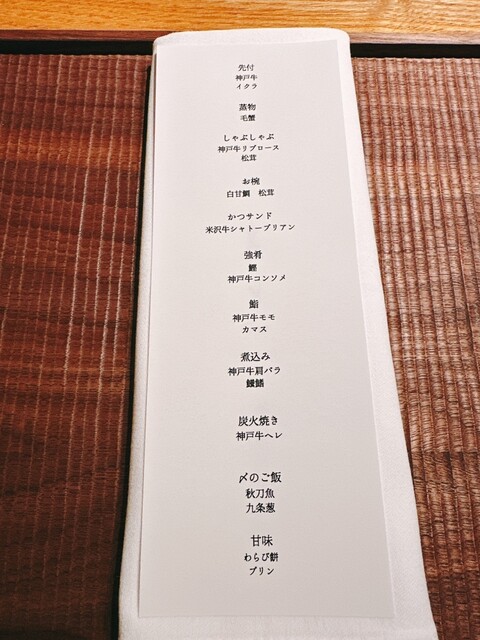 先付
神戸牛
イクラ
蒸物
毛蟹
しゃぶしゃぶ
神戸牛リブロース
松茸
お椀
白甘鯛　松茸
かつサンド
米沢牛シャトーブリアン
強肴
鰹
神戸牛コンソメ
鮨
神戸牛モモ
カマス
煮込み
神戸牛肩バラ
鱶鰭
炭火焼き
神戸牛ヘレ
〆のご飯
秋刀魚
九条葱
甘味
わらび餅
プリン